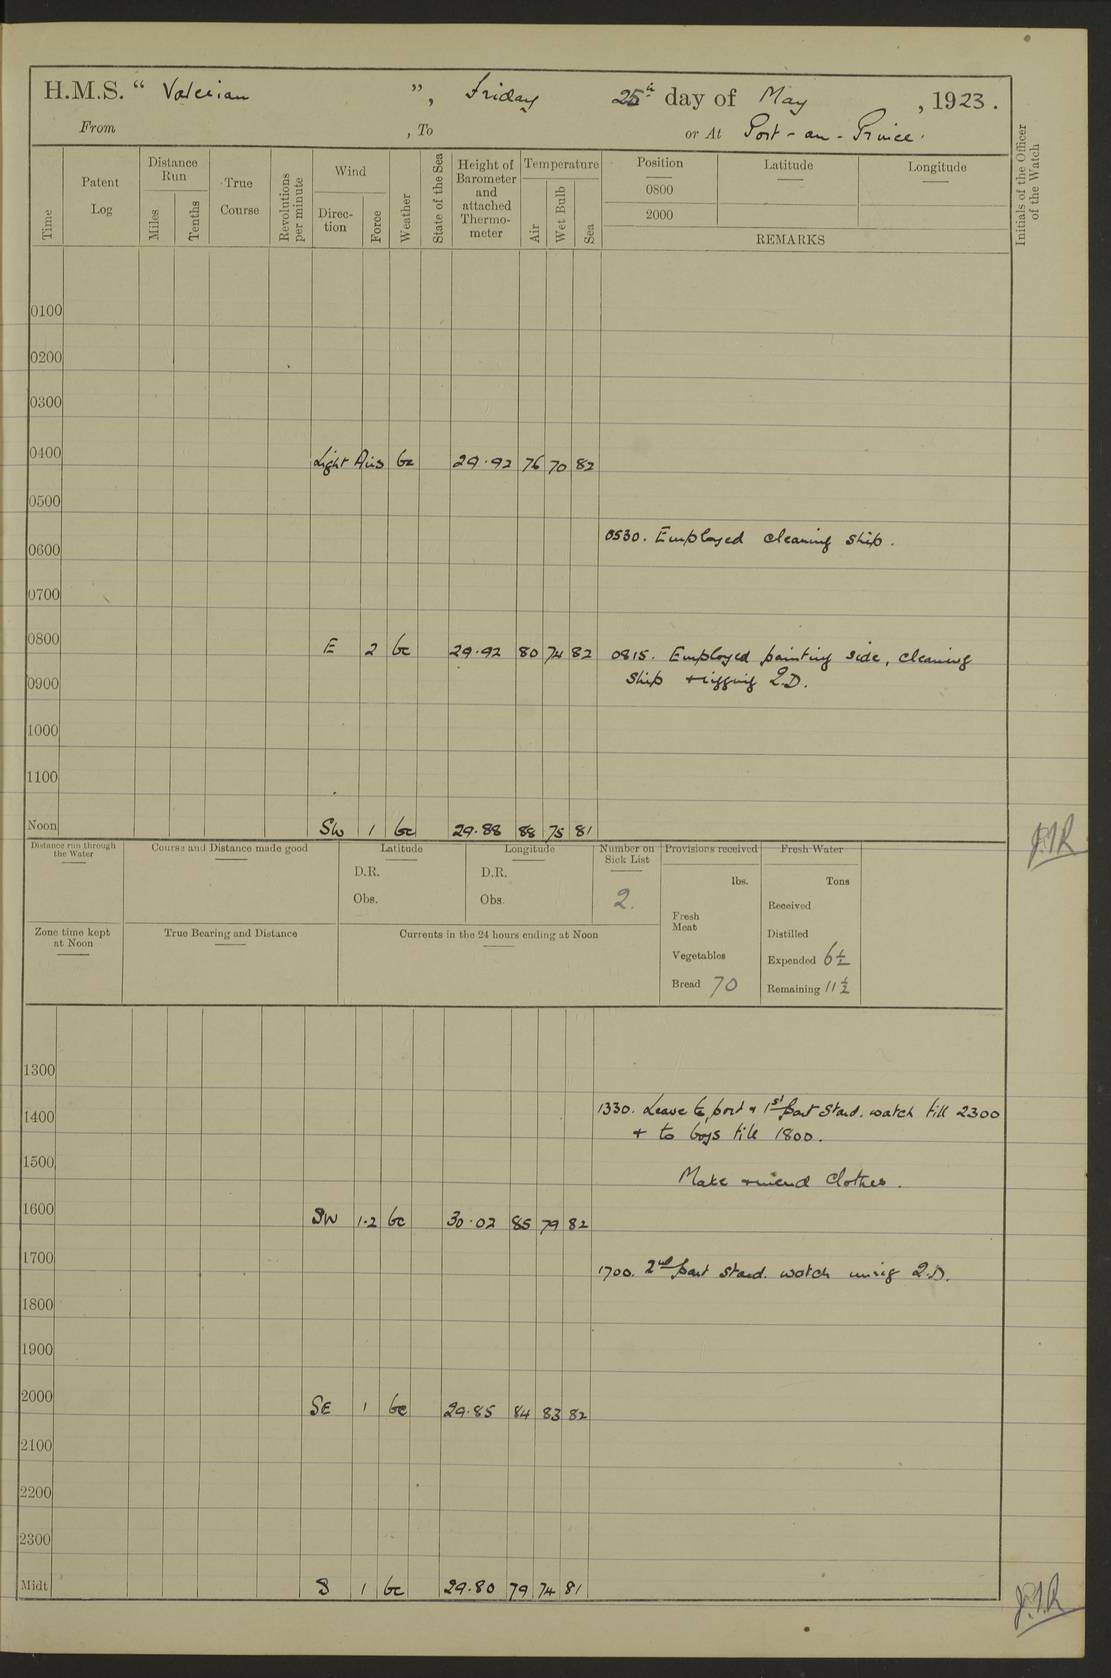 H.M.S. “ Valerian ”, Friday 25th day of May, 1923.
From , To or At Port-au-Prince.
Time
Patent Log
Distance Run
Miles
Tenths
True Course
Revolutions per minute
Wind
Direc-tion
Force
Weather
State of the Sea
Height of Barometer and attached Thermo-meter
Temperature
Air
Wet Bulb
Sea
Position
0800
2000
Latitude
Longitude
REMARKS
Initials of the Officer of the Watch
0100
0200
0300
0400 Light Airs bc 29.92 76 70 82
0500
0530. Employed cleaning ship.
0600
0700
0800 E 2 bc 29.92 80 74 82 0815. Employed painting side, cleaning
ship & rigging Q.D.
0900
1000
1100
Noon SW 1 bc 29.88 88 75 81
Distance run through the Water
Course and Distance made good
Latitude
D.R.
Obs.
Longitude
D.R.
Obs.
Number on Sick List
2.
Provisions received
lbs.
Fresh Meat
Vegetables
Bread 70
Fresh Water
Tons
Received
Distilled
Expended 6½
Remaining 11½
Zone time kept at Noon
True Bearing and Distance
Currents in the 24 hours ending at Noon
1300
1330. Leave to port & 1st part Stard. watch till 2300
1400
& to boys till 1800.
1500
Make & mend clothes.
1600 SW 1.2 bc 30.02 85 79 82
1700
1700. 2nd part Stard. watch unrig Q.D.
1800
1900
2000 SE 1 bc 29.85 84 83 82
2100
2200
2300
Midt S 1 bc 29.80 79 74 81